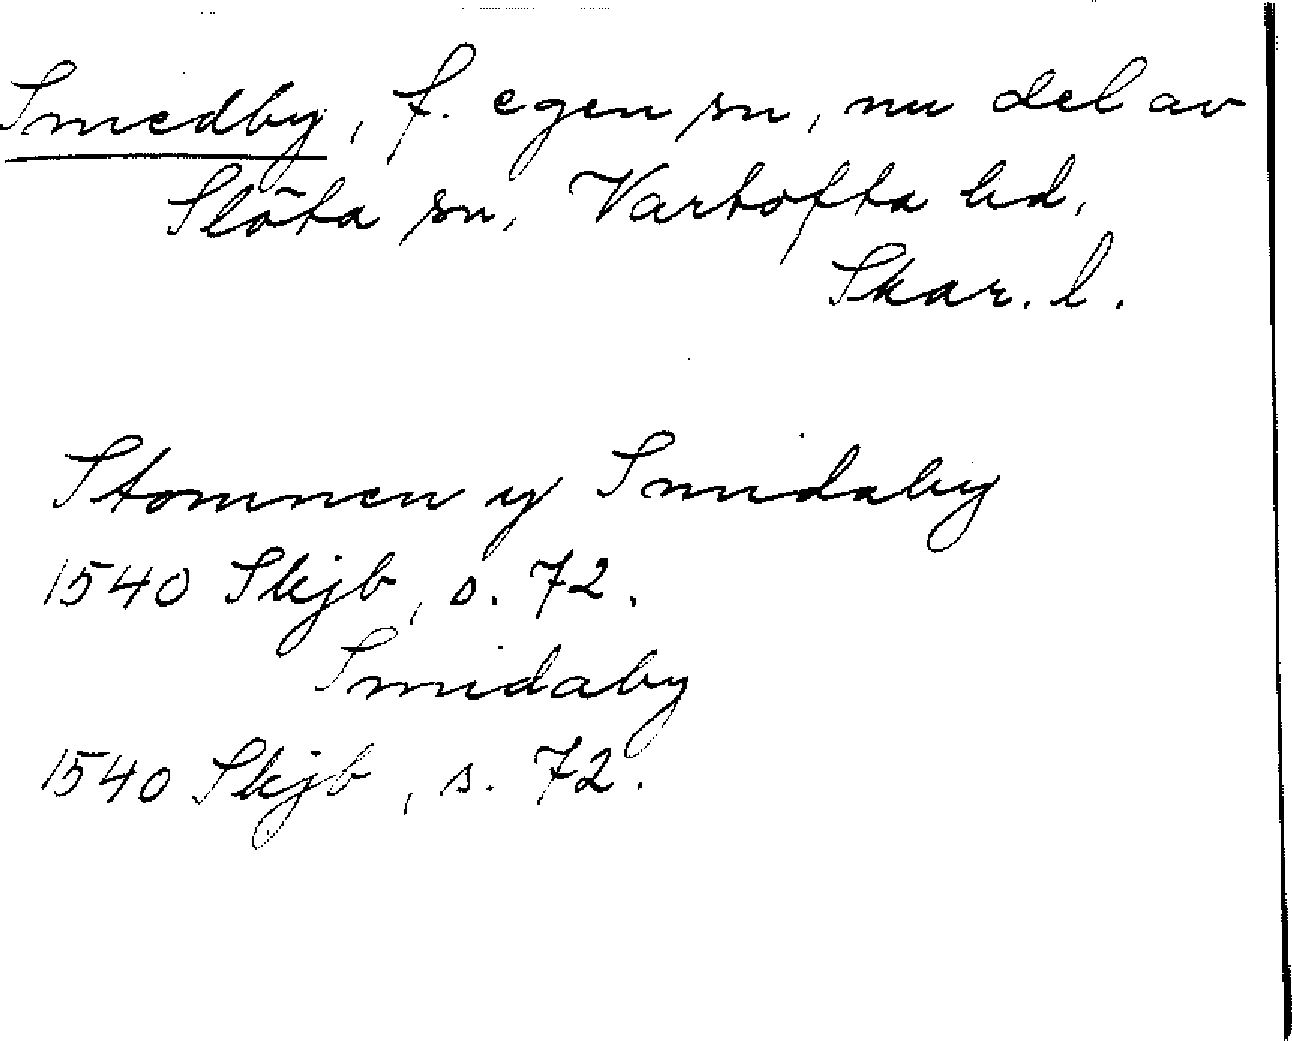 Smedby, f. egen sn, nu del av
Slöta sn, Vartofta hd,
Skar. l.
Stommen y Smidaby
1540 Skjb, s. 72.
Smidaby
1540 Skjb, s. 72.